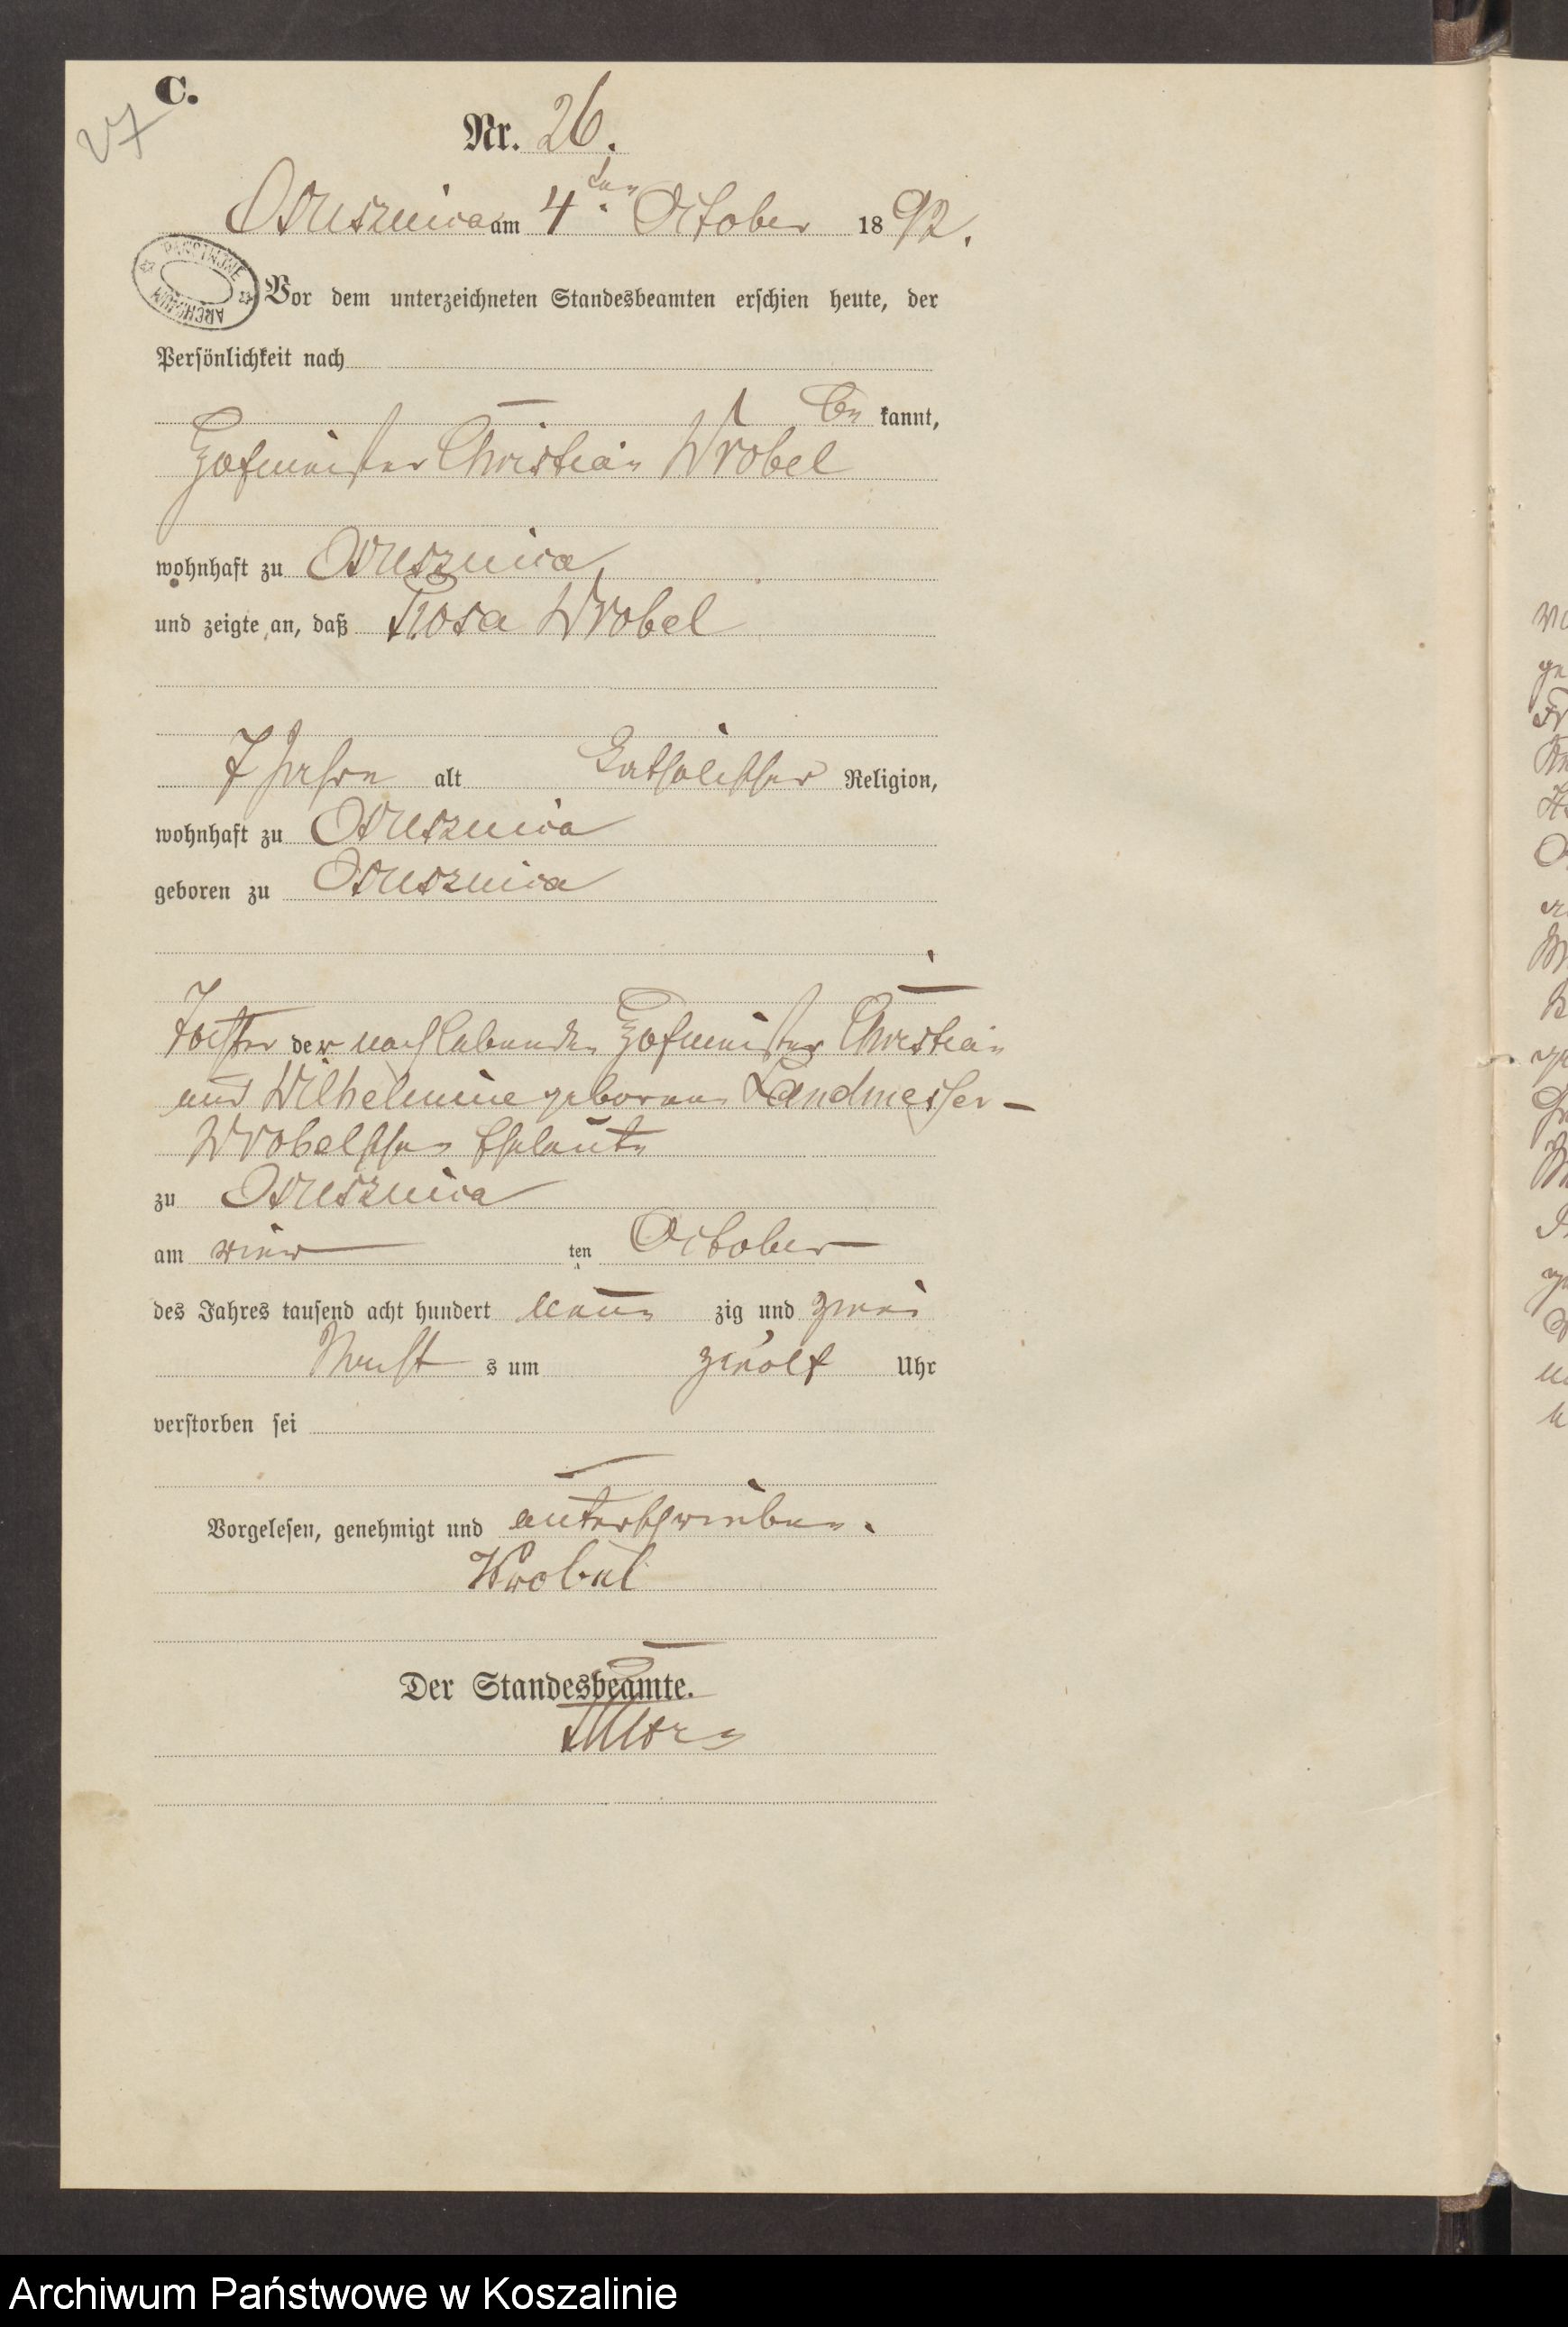 C.
27
Nr. 26.
Ossusznica am 4ten October 1892.
PAŃSTWOWE ARCHIWUM
Vor dem unterzeichneten Standesbeamten erschien heute, der
Persönlichkeit nach
be kannt,
Hofmeister Christian Wrobel
wohnhaft zu Ossusznica
und zeigte an, daß Rosa Wrobel
7 Jahre alt katholischer Religion,
wohnhaft zu Ossusznica
geboren zu Ossusznica
Tochter der noch lebenden Hofmeister Christian
und Wilhelmine geborene Landmesser-
Wrobelschen Eheleute
zu Ossusznica
am vier ten October
des Jahres tausend acht hundert neun zig und zwei
Nacht s um zwölf Uhr
verstorben sei
Vorgelesen, genehmigt und unterschrieben.
Wrobel
Der Standesbeamte.
Archiwum Państwowe w Koszalinie